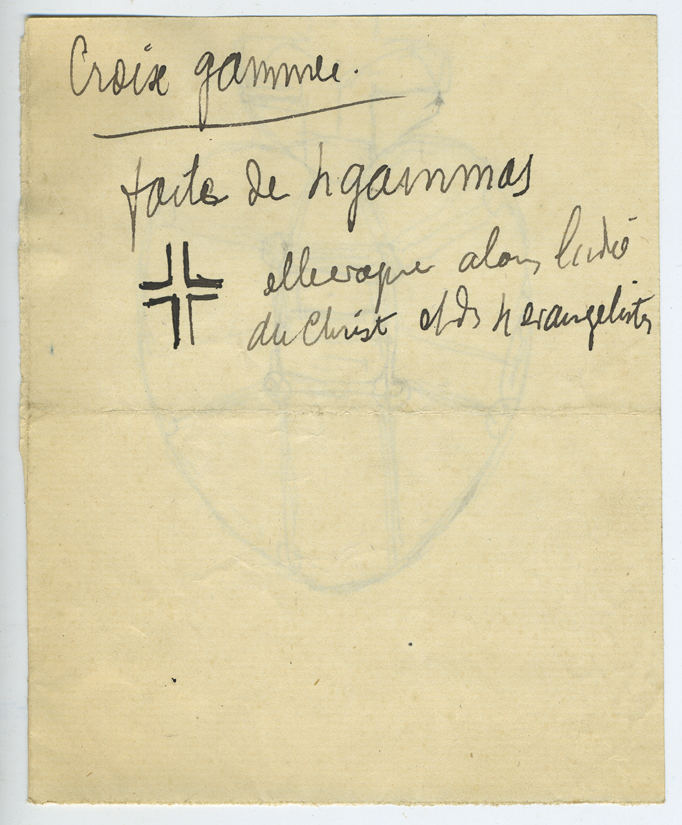 Croix gammée.
faite de 4 gammas
elle evoque alors l'idée
du Christ et des 4 evangelistes